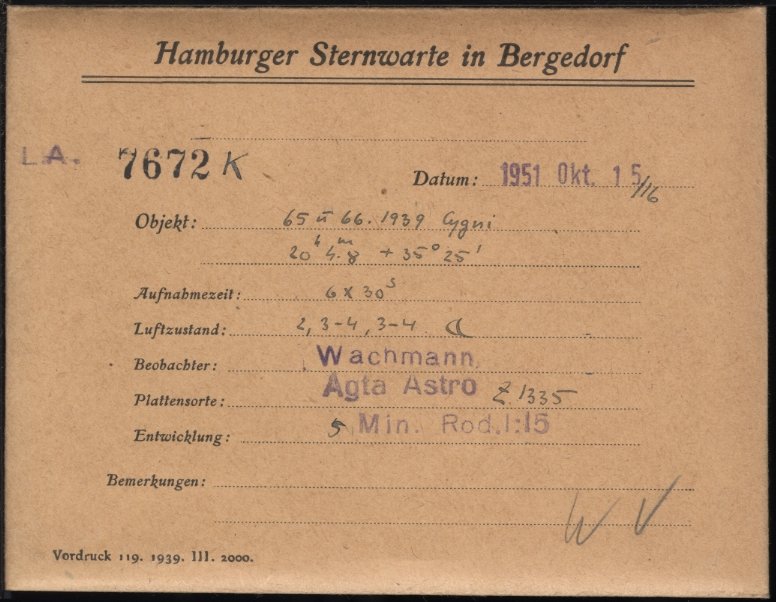 Hamburger Sternwarte in Bergedorf
L.A. 7672 K
Datum: 1951 Okt. 15/16
Objekt: 65 u 66. 1939 Cygni
20h 4m.8 + 35° 25'
Aufnahmezeit: 6 x 30s
Luftzustand: 2, 3-4, 3-4
Beobachter: Wachmann
Plattensorte: Agfa Astro Z 1335
Entwicklung: 5 Min. Rod. 1:15
Bemerkungen:
W V
Vordruck 119. 1939. III. 2000.